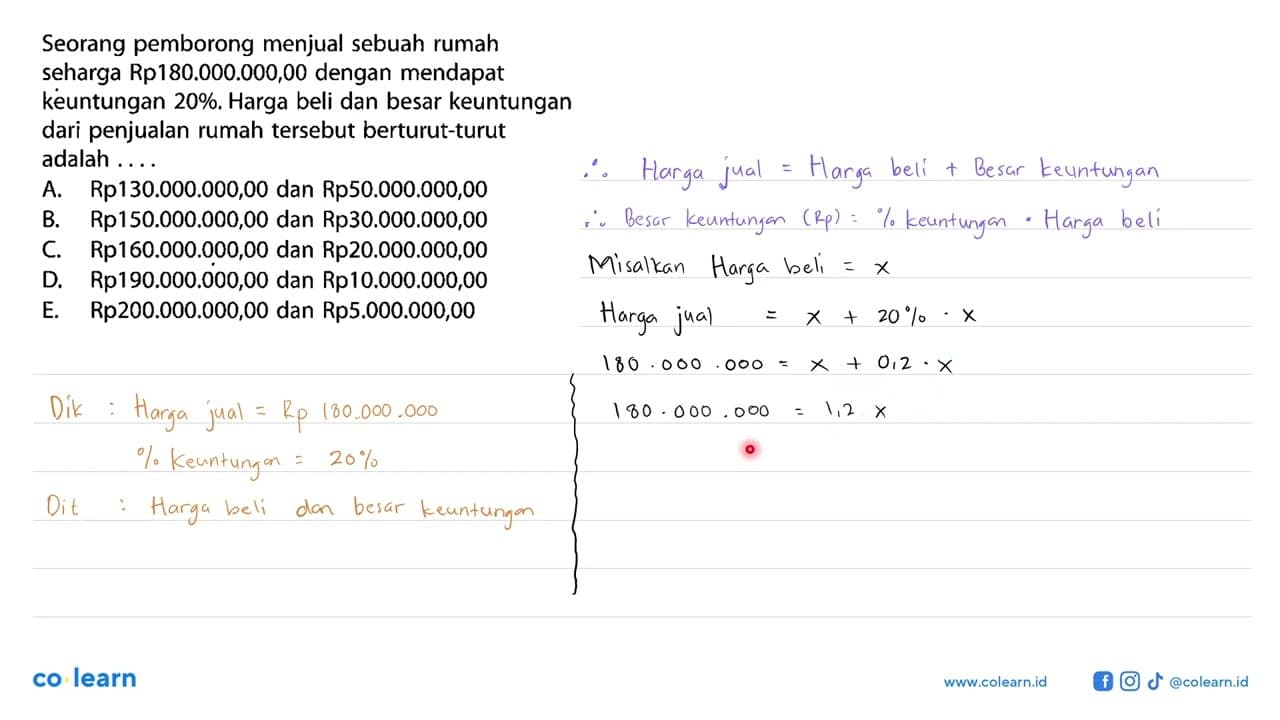 Seorang pemborong menjual sebuah rumah
seharga Rp180.000.000,00 dengan mendapat
keuntungan 20%. Harga beli dan besar keuntungan
dari penjualan rumah tersebut berturut-turut
adalah ....
A. Rp130.000.000,00 dan Rp50.000.000,00
B. Rp150.000.000,00 dan Rp30.000.000,00
C. Rp160.000.000,00 dan Rp20.000.000,00
D. Rp190.000.000,00 dan Rp10.000.000,00
E. Rp200.000.000,00 dan Rp5.000.000,00
Dik : Harga jual = Rp 180.000.000
% keuntungan = 20%
Dit : Harga beli dan besar keuntungan
∴ Harga jual = Harga beli + Besar keuntungan
∴ Besar keuntungan (Rp) = % keuntungan · Harga beli
Misalkan Harga beli = x
Harga jual = x + 20% · x
180.000.000 = x + 0,2 · x
180.000.000 = 1,2 x
co learn
www.colearn.id
@colearn.id